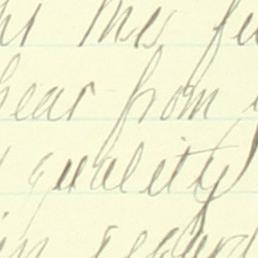 Mrs
hear from
quality
in regard